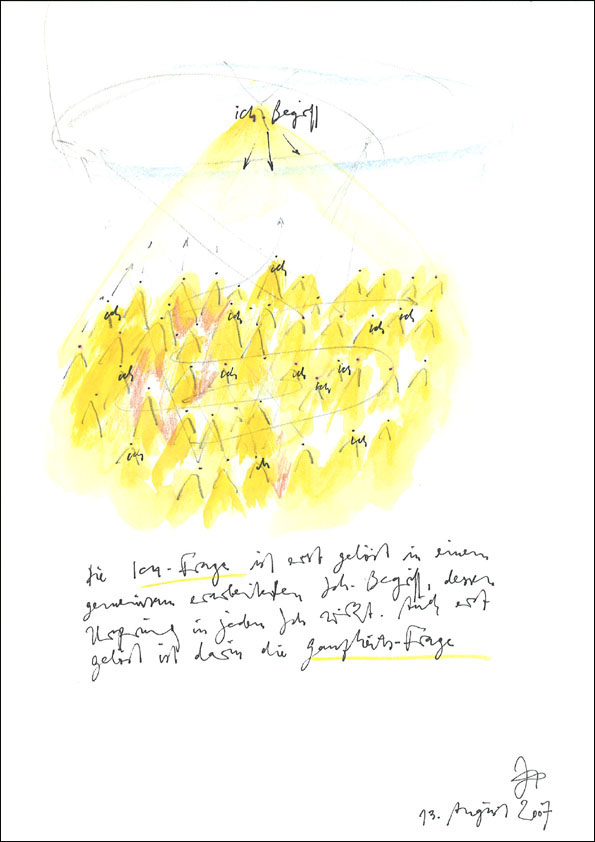 ich-Begriff
ich
ich ich ich ich
ich ich ich ich
ich
ich ich
ich
die Ich-Frage ist erst gelöst in einem
gemeinsam erarbeiteten Ich-Begriff, dessen
Ursprung in jedem Ich wirkt. Auch erst
gelöst ist darin die Ganzheits-Frage
13. August 2007